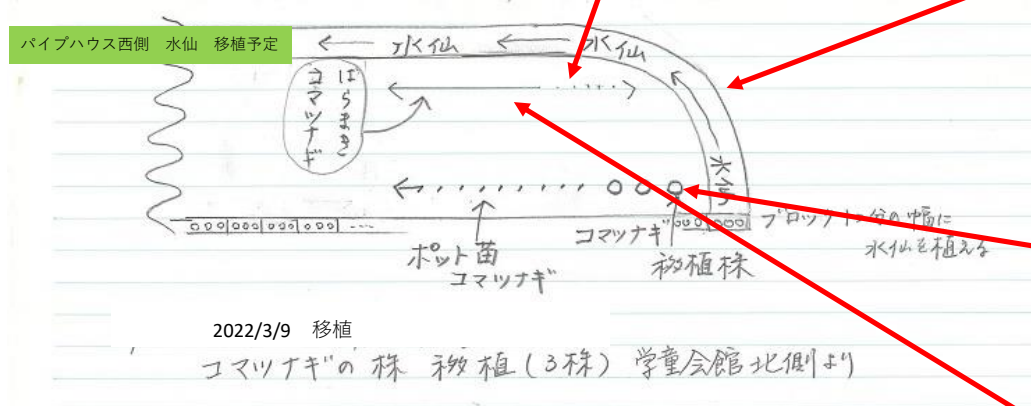 パイプハウス西側 水仙 移植予定
水仙
水仙
水仙
ばらまき
コマツナギ
ポット苗
コマツナギ
コマツナギ
移植株
ブロック1つ分の幅に
水仙を植える
2022/3/9 移植
コマツナギの株 移植(3株) 学童会館北側より